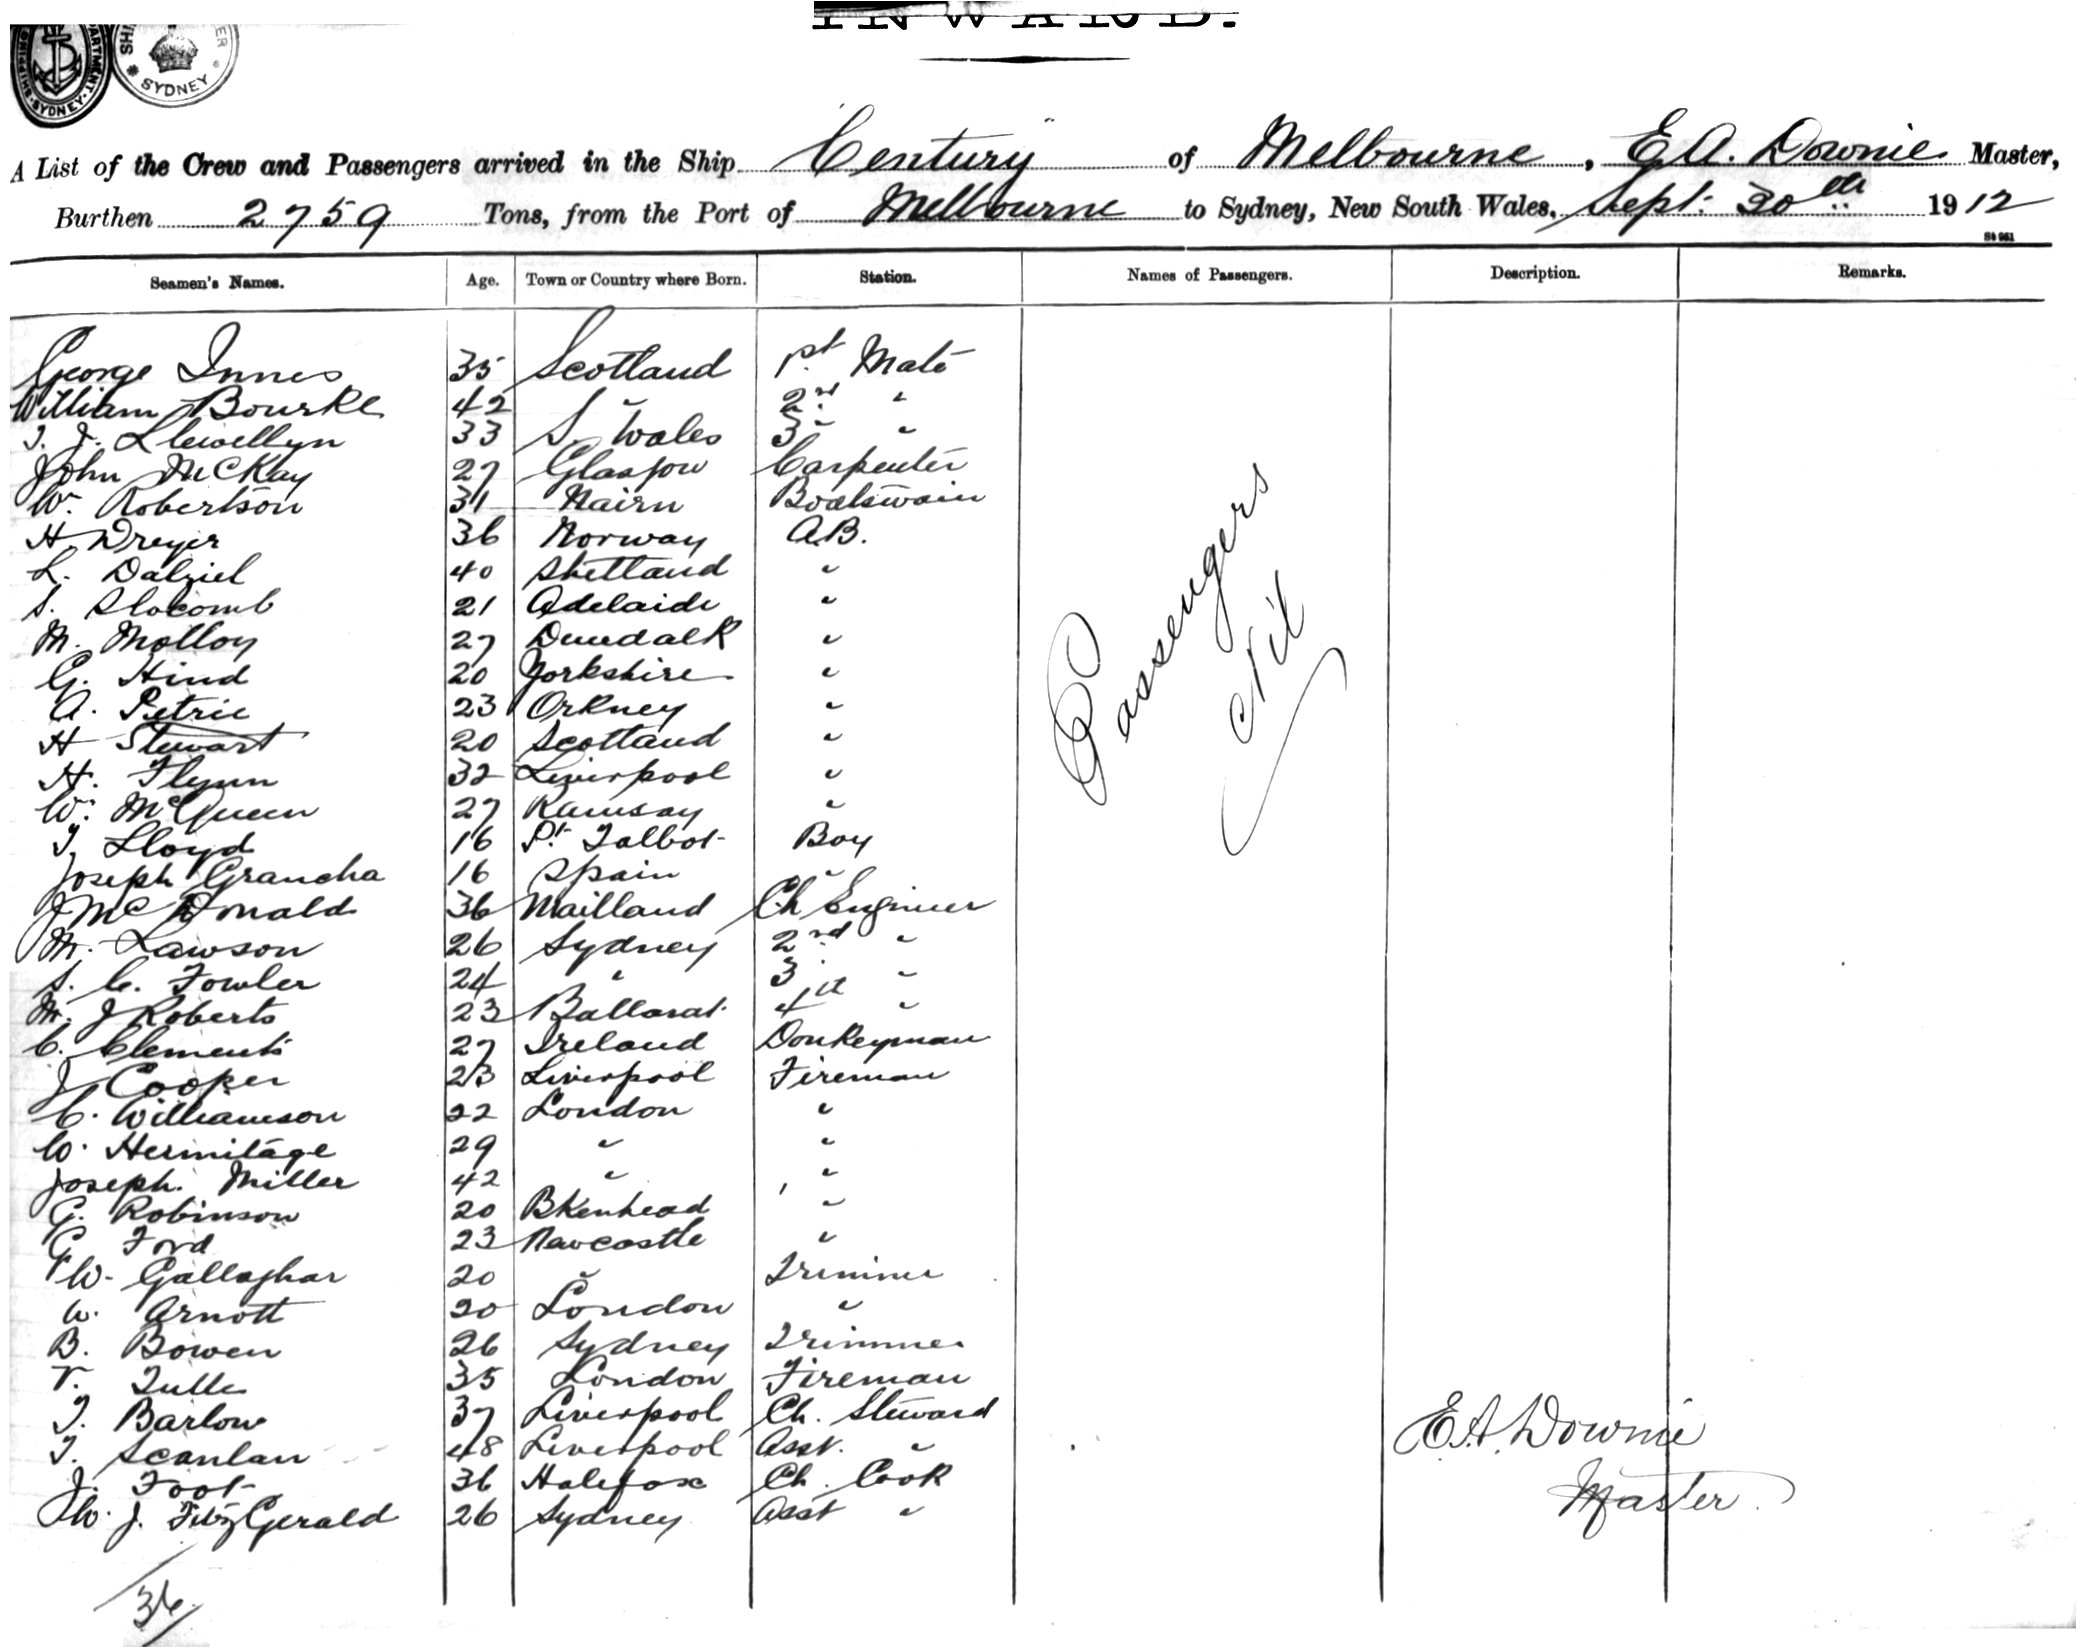 INWARD.
SHIPPING DEPARTMENT SYDNEY
SYDNEY
A List of the Crew and Passengers arrived in the Ship Century of Melbourne, E.A. Downie Master,
Burthen 2759 Tons, from the Port of Melbourne to Sydney, New South Wales, Sept: 30th 1912
St 961
Seamen's Names. Age. Town or Country where Born. Station. Names of Passengers. Description. Remarks.
George Innes 35 Scotland 1st Mate
William Bourke 42 " 2nd "
T. J. Llewellyn 33 S. Wales 3 "
John McKay 27 Glasgow Carpenter
W. Robertson 31 Nairn Boatswain
H Dreyer 36 Norway A.B.
L. Dalziel 40 Shetland "
S. Slocomb 21 Adelaide "
M. Molloy 27 Dundalk "
G. Hind 20 Yorkshire "
A. Petrie 23 Orkney "
H Stewart 20 Scotland "
H. Flynn 32 Liverpool "
W. McQueen 27 Ramsay "
T. Lloyd 16 Pt Talbot Boy
Joseph Grancha 16 Spain "
J McDonald 36 Mailland Ch Engineer
M. Lawson 26 Sydney 2nd "
S. C. Fowler 24 " 3 "
M. J Roberts 23 Ballarat 4th "
C. Clements 27 Ireland Donkeyman
J Cooper 23 Liverpool Fireman
C. Williamson 22 London "
W. Hermitage 29 " "
Joseph. Miller 42 " "
G. Robinson 20 Bkenhead "
G Ford 23 Newcastle "
W. Gallaghar 20 " Trimmer
W. Arnott 20 London "
B. Bowen 26 Sydney Trimmer
T. Tulle 35 London Fireman
T. Barlow 37 Liverpool Ch. Steward
T. Scanlan 48 Liverpool Asst. "
J. Foot 36 Halefox Ch. Cook
W. J. FitzGerald 26 Sydney Asst "
36
Passengers
Nil
E.A. Downie
Master